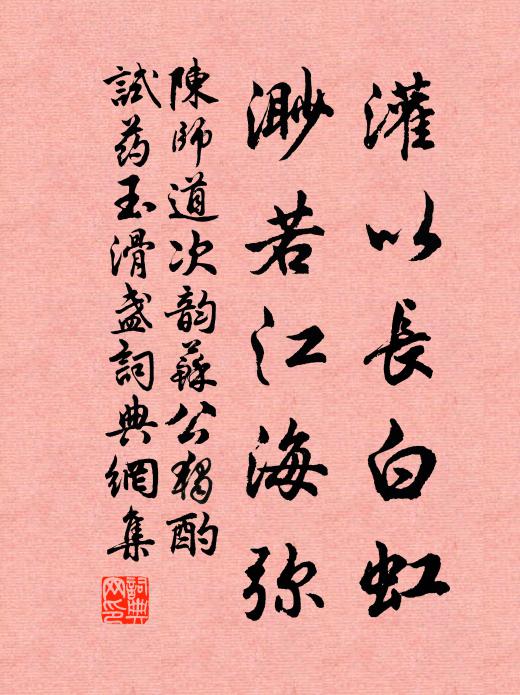 灌以長白虹
渺若江海弥
陳師道次韵蘇公獨酌
試药玉滑盏詞典網集
詞典网印